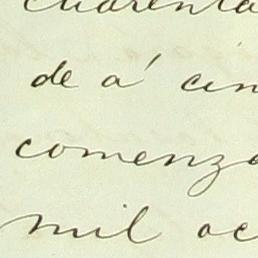 cuarenta
de á cin
comenza
mil oc